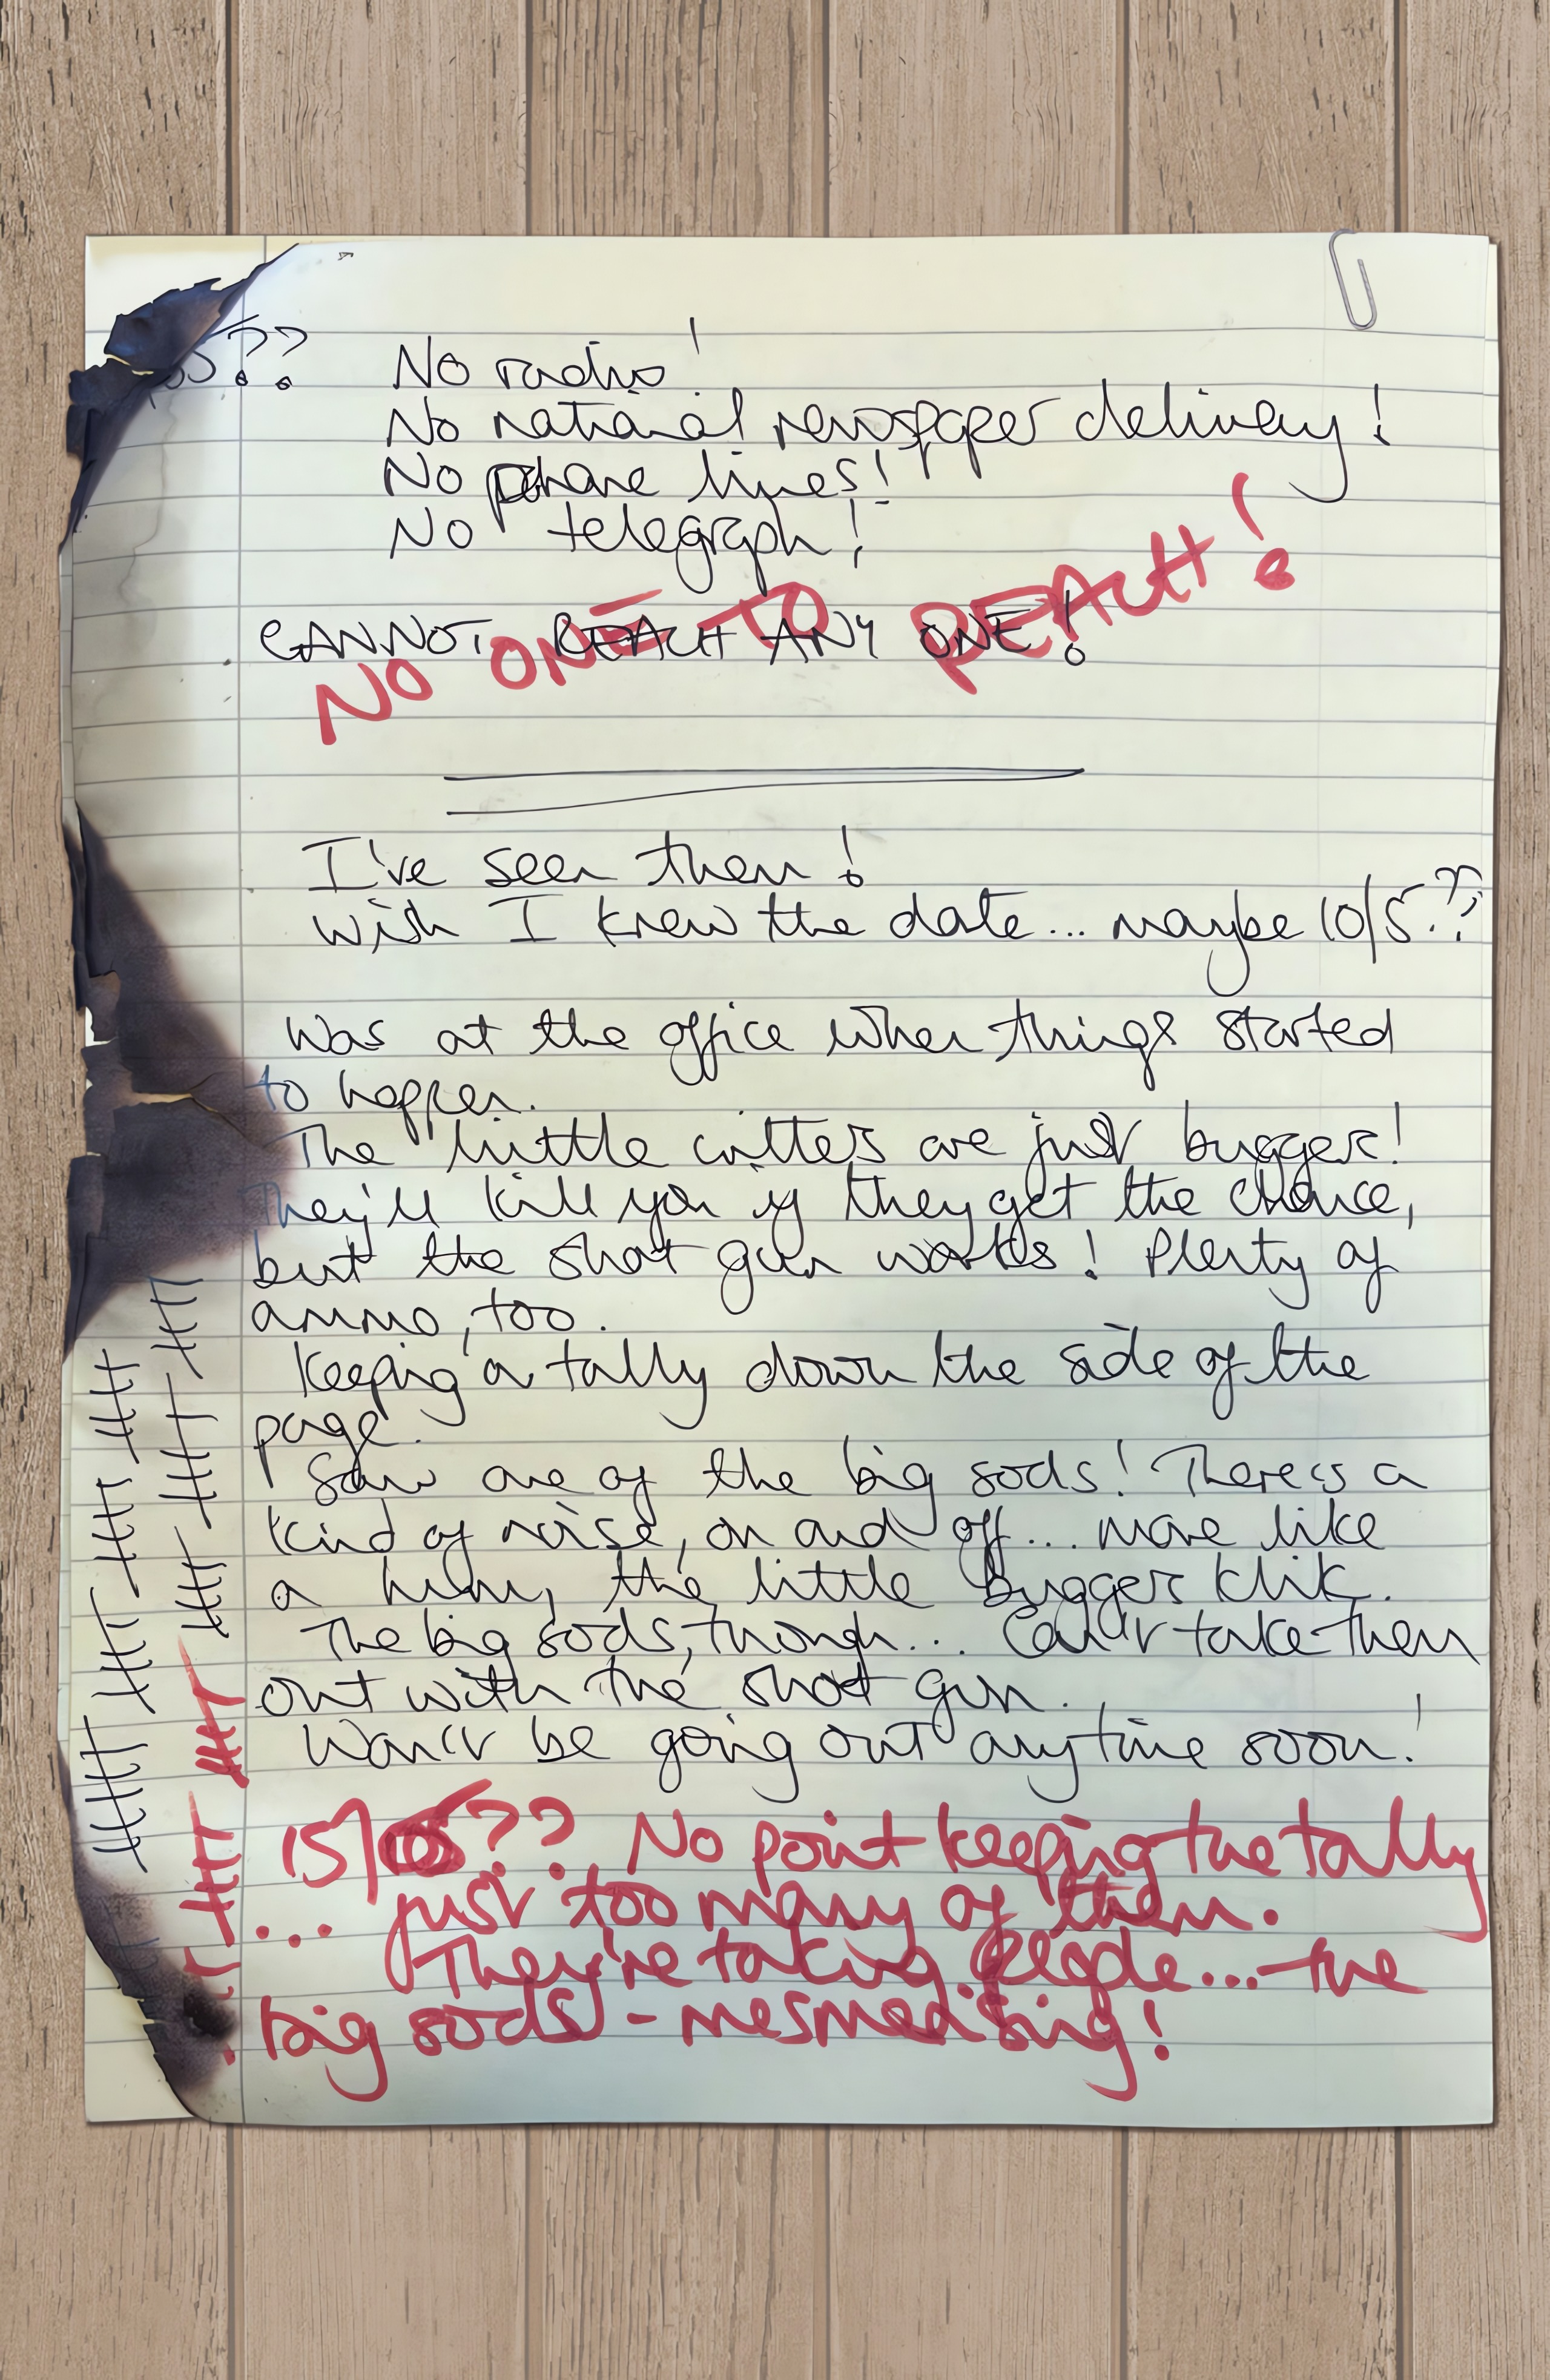 05??
No radio!
No national newspaper delivery!
No phone lines!
No telegraph!
CANNOT REACH ANY ONE!
NO ONE TO REACH!
I've seen them!
Wish I knew the date... maybe 10/5??
Was at the office when things started
to happen.
The little critters are just buggers!
They'll kill you if they get the chance,
but the shot gun works! Plenty of
ammo, too.
Keeping a tally down the side of the
page.
Saw one of the big sods! There is a
kind of noise, on and off... more like
a hum, the little buggers klik.
The big sods, though... Can't take them
out with the shot gun.
Won't be going out anytime soon!
15/05?? No point keeping the tally
... just too many of them.
They're taking people... the
big sods - mesmerising!